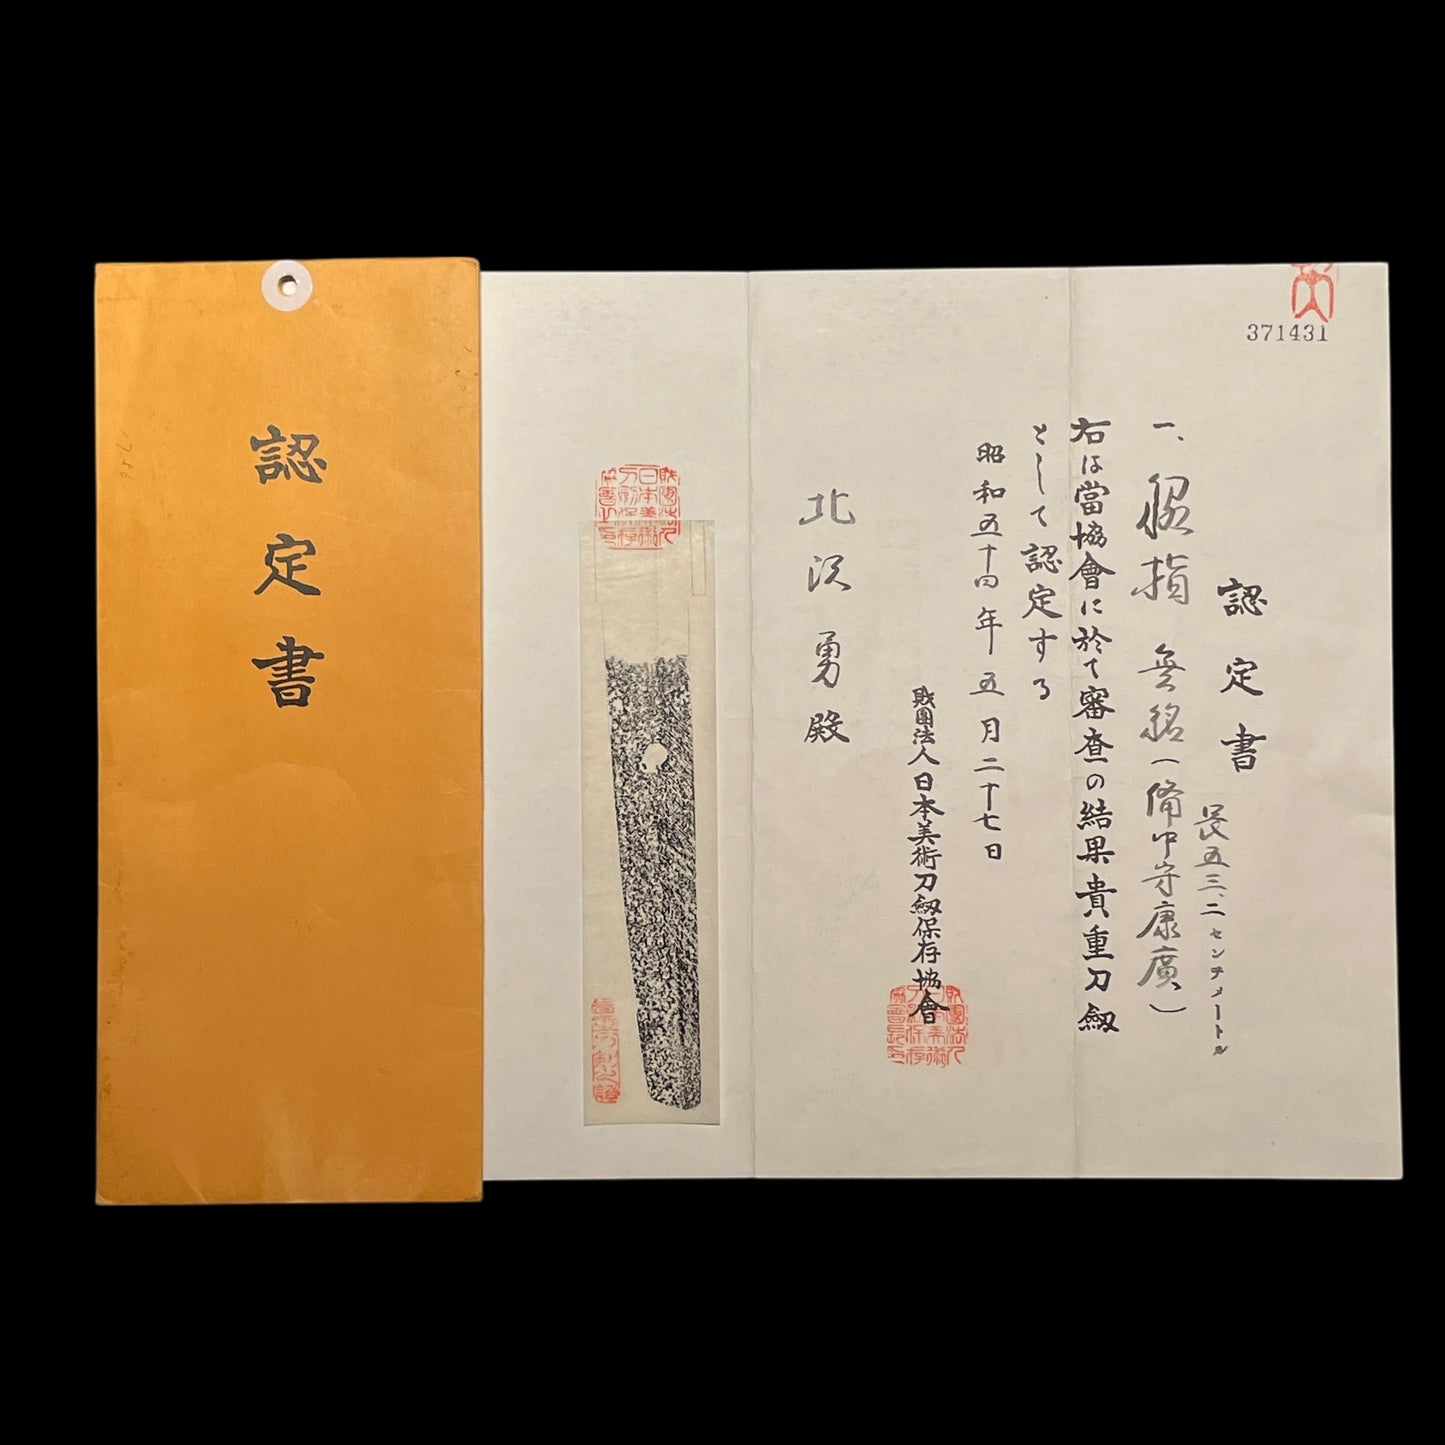 認定書
371431
認定書
長五三、二センチメートル
一、脇指 無銘(備中守康廣)
右は當協會に於て審査の結果貴重刀劔
として認定する
昭和五十四年五月二十七日
財團法人日本美術刀劔保存協會
北沢勇殿